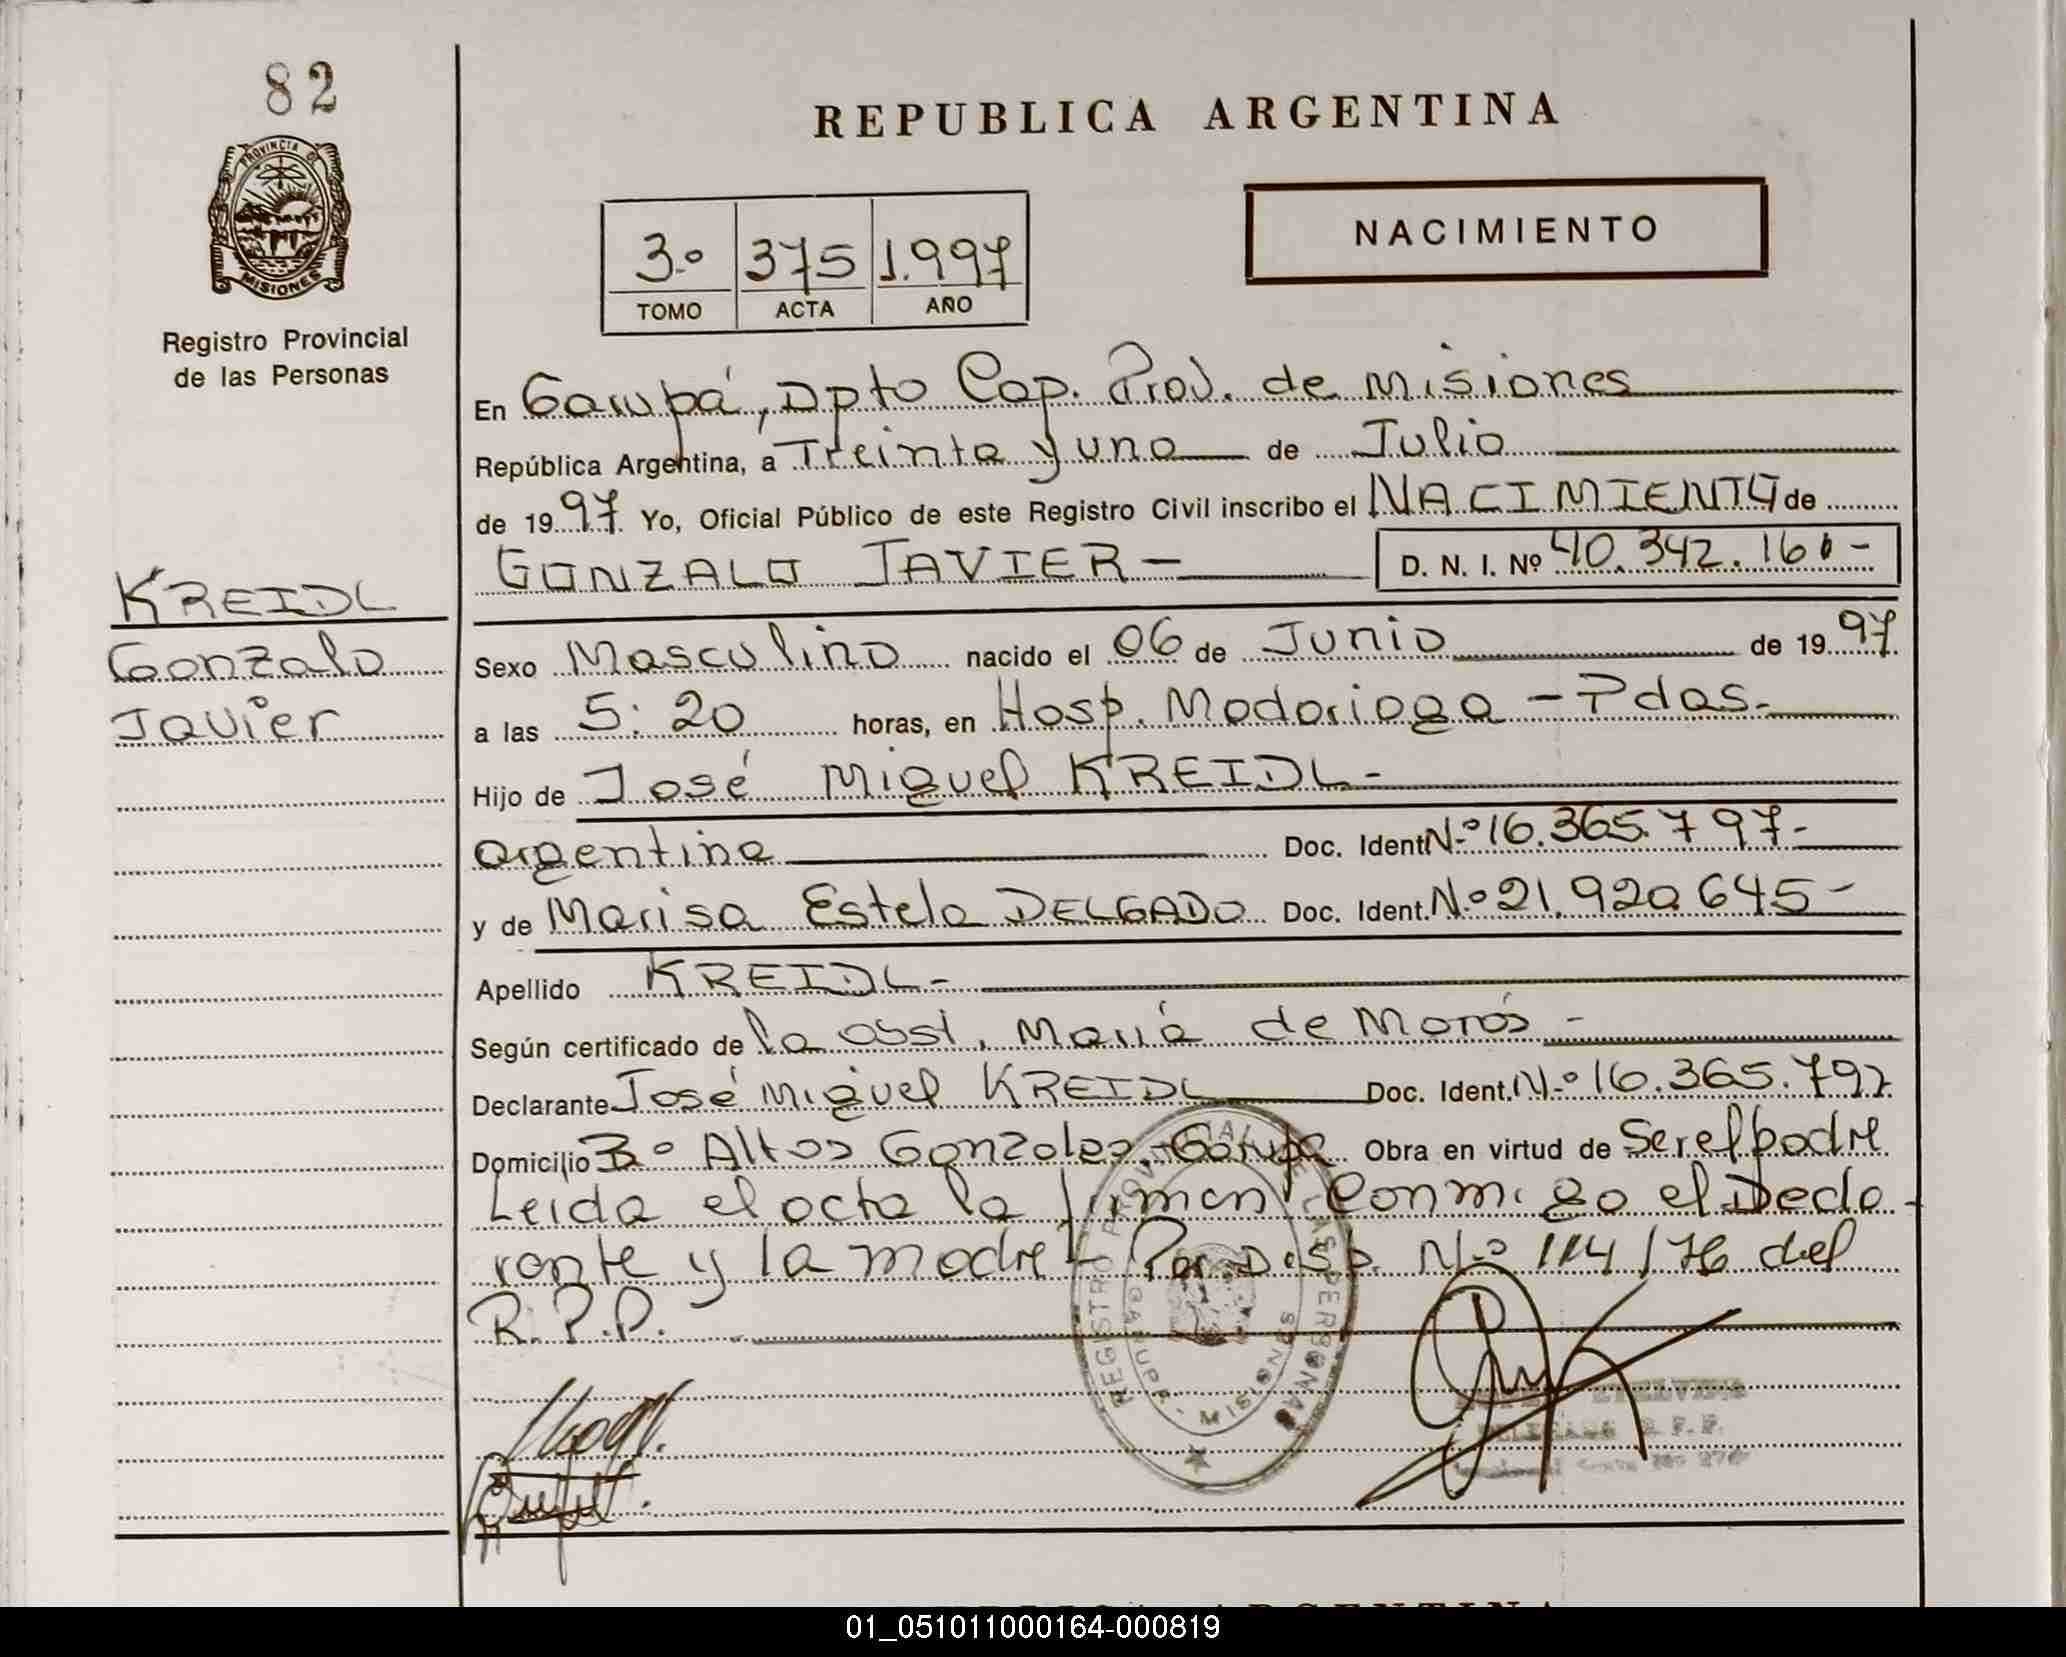 82
REPUBLICA ARGENTINA
PROVINCIA DE
MISIONES
Registro Provincial
de las Personas
3º 375 1.997
TOMO ACTA AÑO
NACIMIENTO
En Garupá, Dpto Cap. Prov. de Misiones
República Argentina, a Treinta y uno de Julio
de 1997 Yo, Oficial Público de este Registro Civil inscribo el NACIMIENTO de
GONZALO JAVIER - D. N. I. Nº 40.342.161-
KREIDL
Gonzalo
Javier
Sexo Masculino nacido el 06 de Junio de 1997
a las 5:20 horas, en Hosp. Madariaga - Pdas.-
Hijo de José Miguel KREIDL-
argentina Doc. Ident Nº 16.365.797-
y de Marisa Estela DELGADO Doc. Ident. Nº 21.920.645-
Apellido KREIDL-
Según certificado de la obst. María de Morós -
Declarante José Miguel KREIDL Doc. Ident. Nº 16.365.797
Domicilio Bº Altos Gonzales, Garupa Obra en virtud de Ser el padre
Leida el acta la firman conmigo el Decla-
rante y la madre - Por Disp. Nº 114/76 del
R.P.P.
REGISTRO PROVINCIAL DE LAS PERSONAS
GARUPA - MISIONES
01_051011000164-000819